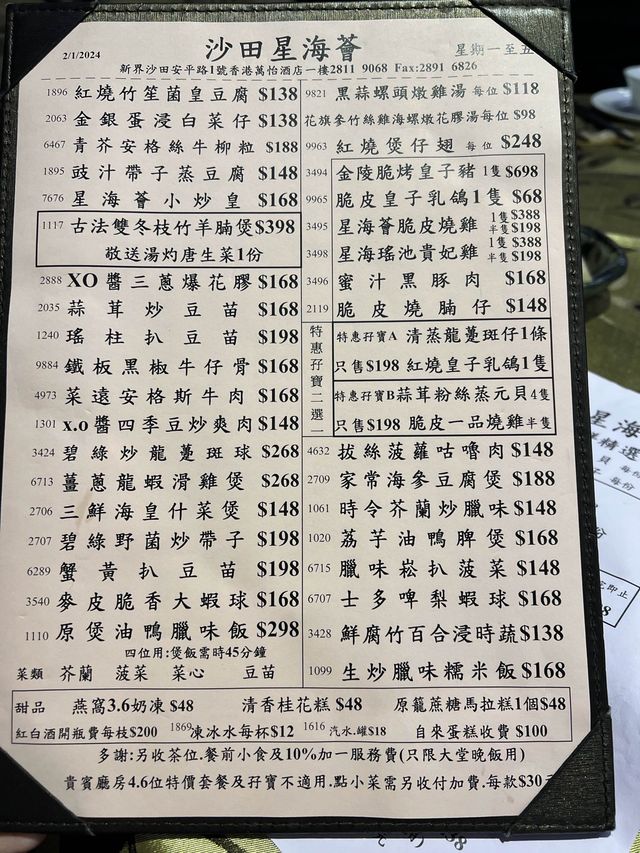 2/1/2024
沙田星海薈
星期一至五
新界沙田安平路1號香港萬怡酒店一樓2811 9068 Fax:2891 6826
1896 紅燒竹笙菌皇豆腐 $138
2063 金銀蛋浸白菜仔 $138
6467 青芥安格絲牛柳粒 $188
1895 豉汁帶子蒸豆腐 $148
7676 星海薈小炒皇 $168
1117 古法雙冬枝竹羊腩煲 $398
敬送湯灼唐生菜1份
2888 XO醬三蔥爆花膠 $168
2035 蒜茸炒豆苗 $168
1240 瑤柱扒豆苗 $198
9884 鐵板黑椒牛仔骨 $168
4973 菜遠安格斯牛肉 $168
1301 x.o醬四季豆炒爽肉 $148
3424 碧綠炒龍躉斑球 $268
6713 薑蔥龍蝦滑雞煲 $268
2706 三鮮海皇什菜煲 $148
2707 碧綠野菌炒帶子 $198
6289 蟹黃扒豆苗 $198
3540 麥皮脆香大蝦球 $168
1110 原煲油鴨臘味飯 $298
四位用:煲飯需時45分鐘
菜類 芥蘭 菠菜 菜心 豆苗
9821 黑蒜螺頭燉雞湯 每位 $118
花旗參竹絲雞海螺燉花膠湯每位 $98
9963 紅燒煲仔翅 每位 $248
3494 金陵脆烤皇子豬 1隻 $698
9965 脆皮皇子乳鴿1隻 $68
3495 星海薈脆皮燒雞 1隻 $388 半隻 $198
3498 星海瑤池貴妃雞 1隻 $388 半隻 $198
3496 蜜汁黑豚肉 $168
2119 脆皮燒腩仔 $148
特惠孖寶二選一
特惠孖寶A 清蒸龍躉斑仔1條
只售$198 紅燒皇子乳鴿1隻
特惠孖寶B蒜茸粉絲蒸元貝4隻
只售$198 脆皮一品燒雞半隻
4632 拔絲菠蘿咕嚕肉 $148
2709 家常海參豆腐煲 $188
1061 時令芥蘭炒臘味 $148
1020 荔芋油鴨脾煲 $168
6715 臘味崧扒菠菜 $148
6707 士多啤梨蝦球 $168
3428 鮮腐竹百合浸時蔬 $138
1099 生炒臘味糯米飯 $168
甜品 燕窩3.6奶凍 $48 清香桂花糕 $48 原籠蔗糖馬拉糕1個$48
紅白酒開瓶費每枝$200 1869凍冰水每杯$12 1616 汽水.罐$18 自來蛋糕收費 $100
多謝:另收茶位.餐前小食及10%加一服務費(只限大堂晚飯用)
貴賓廳房4.6位特價套餐及孖寶不適用.點小菜需另收付加費.每款$30元